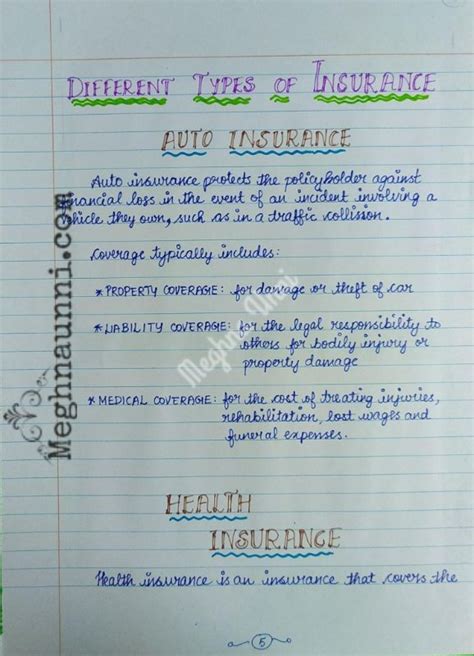 DIFFERENT TYPES OF INSURANCE
AUTO INSURANCE
Auto insurance protects the policyholder against
financial loss in the event of an incident involving a
vehicle they own, such as in a traffic collision.
Coverage typically includes:
* PROPERTY COVERAGE: for damage or theft of car
* LIABILITY COVERAGE: for the legal responsibility to
others for bodily injury or
property damage
* MEDICAL COVERAGE: for the cost of treating injuries,
rehabilitation, lost wages and
funeral expenses.
HEALTH
INSURANCE
Health insurance is an insurance that covers the
5
Meghnaunni.com
Meghna Unni